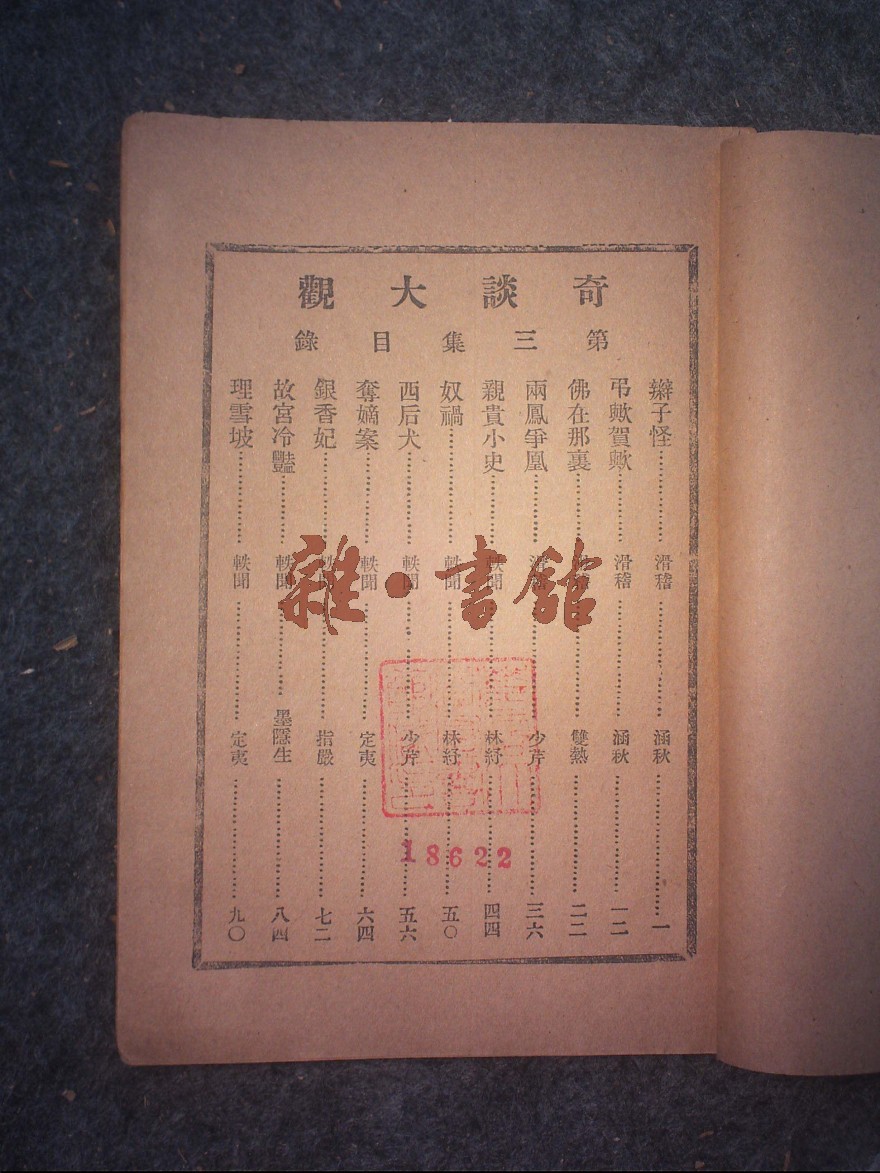 奇談大觀
第三集目錄
辮子怪……滑稽……涵秋……一
弔歟賀歟……滑稽……涵秋……一二
佛在那裏……滑稽……雙熱……二二
兩鳳爭凰……滑稽……少芹……三六
親貴小史……軼聞……林紓……四四
奴禍……軼聞……林紓……五〇
西后犬……軼聞……少芹……五六
奪嫡案……軼聞……定夷……六四
銀香妃……軼聞……指嚴……七二
故宮冷豔……軼聞……墨隱生……八四
理雪坡……軼聞……定夷……九〇
雜·書館
18622